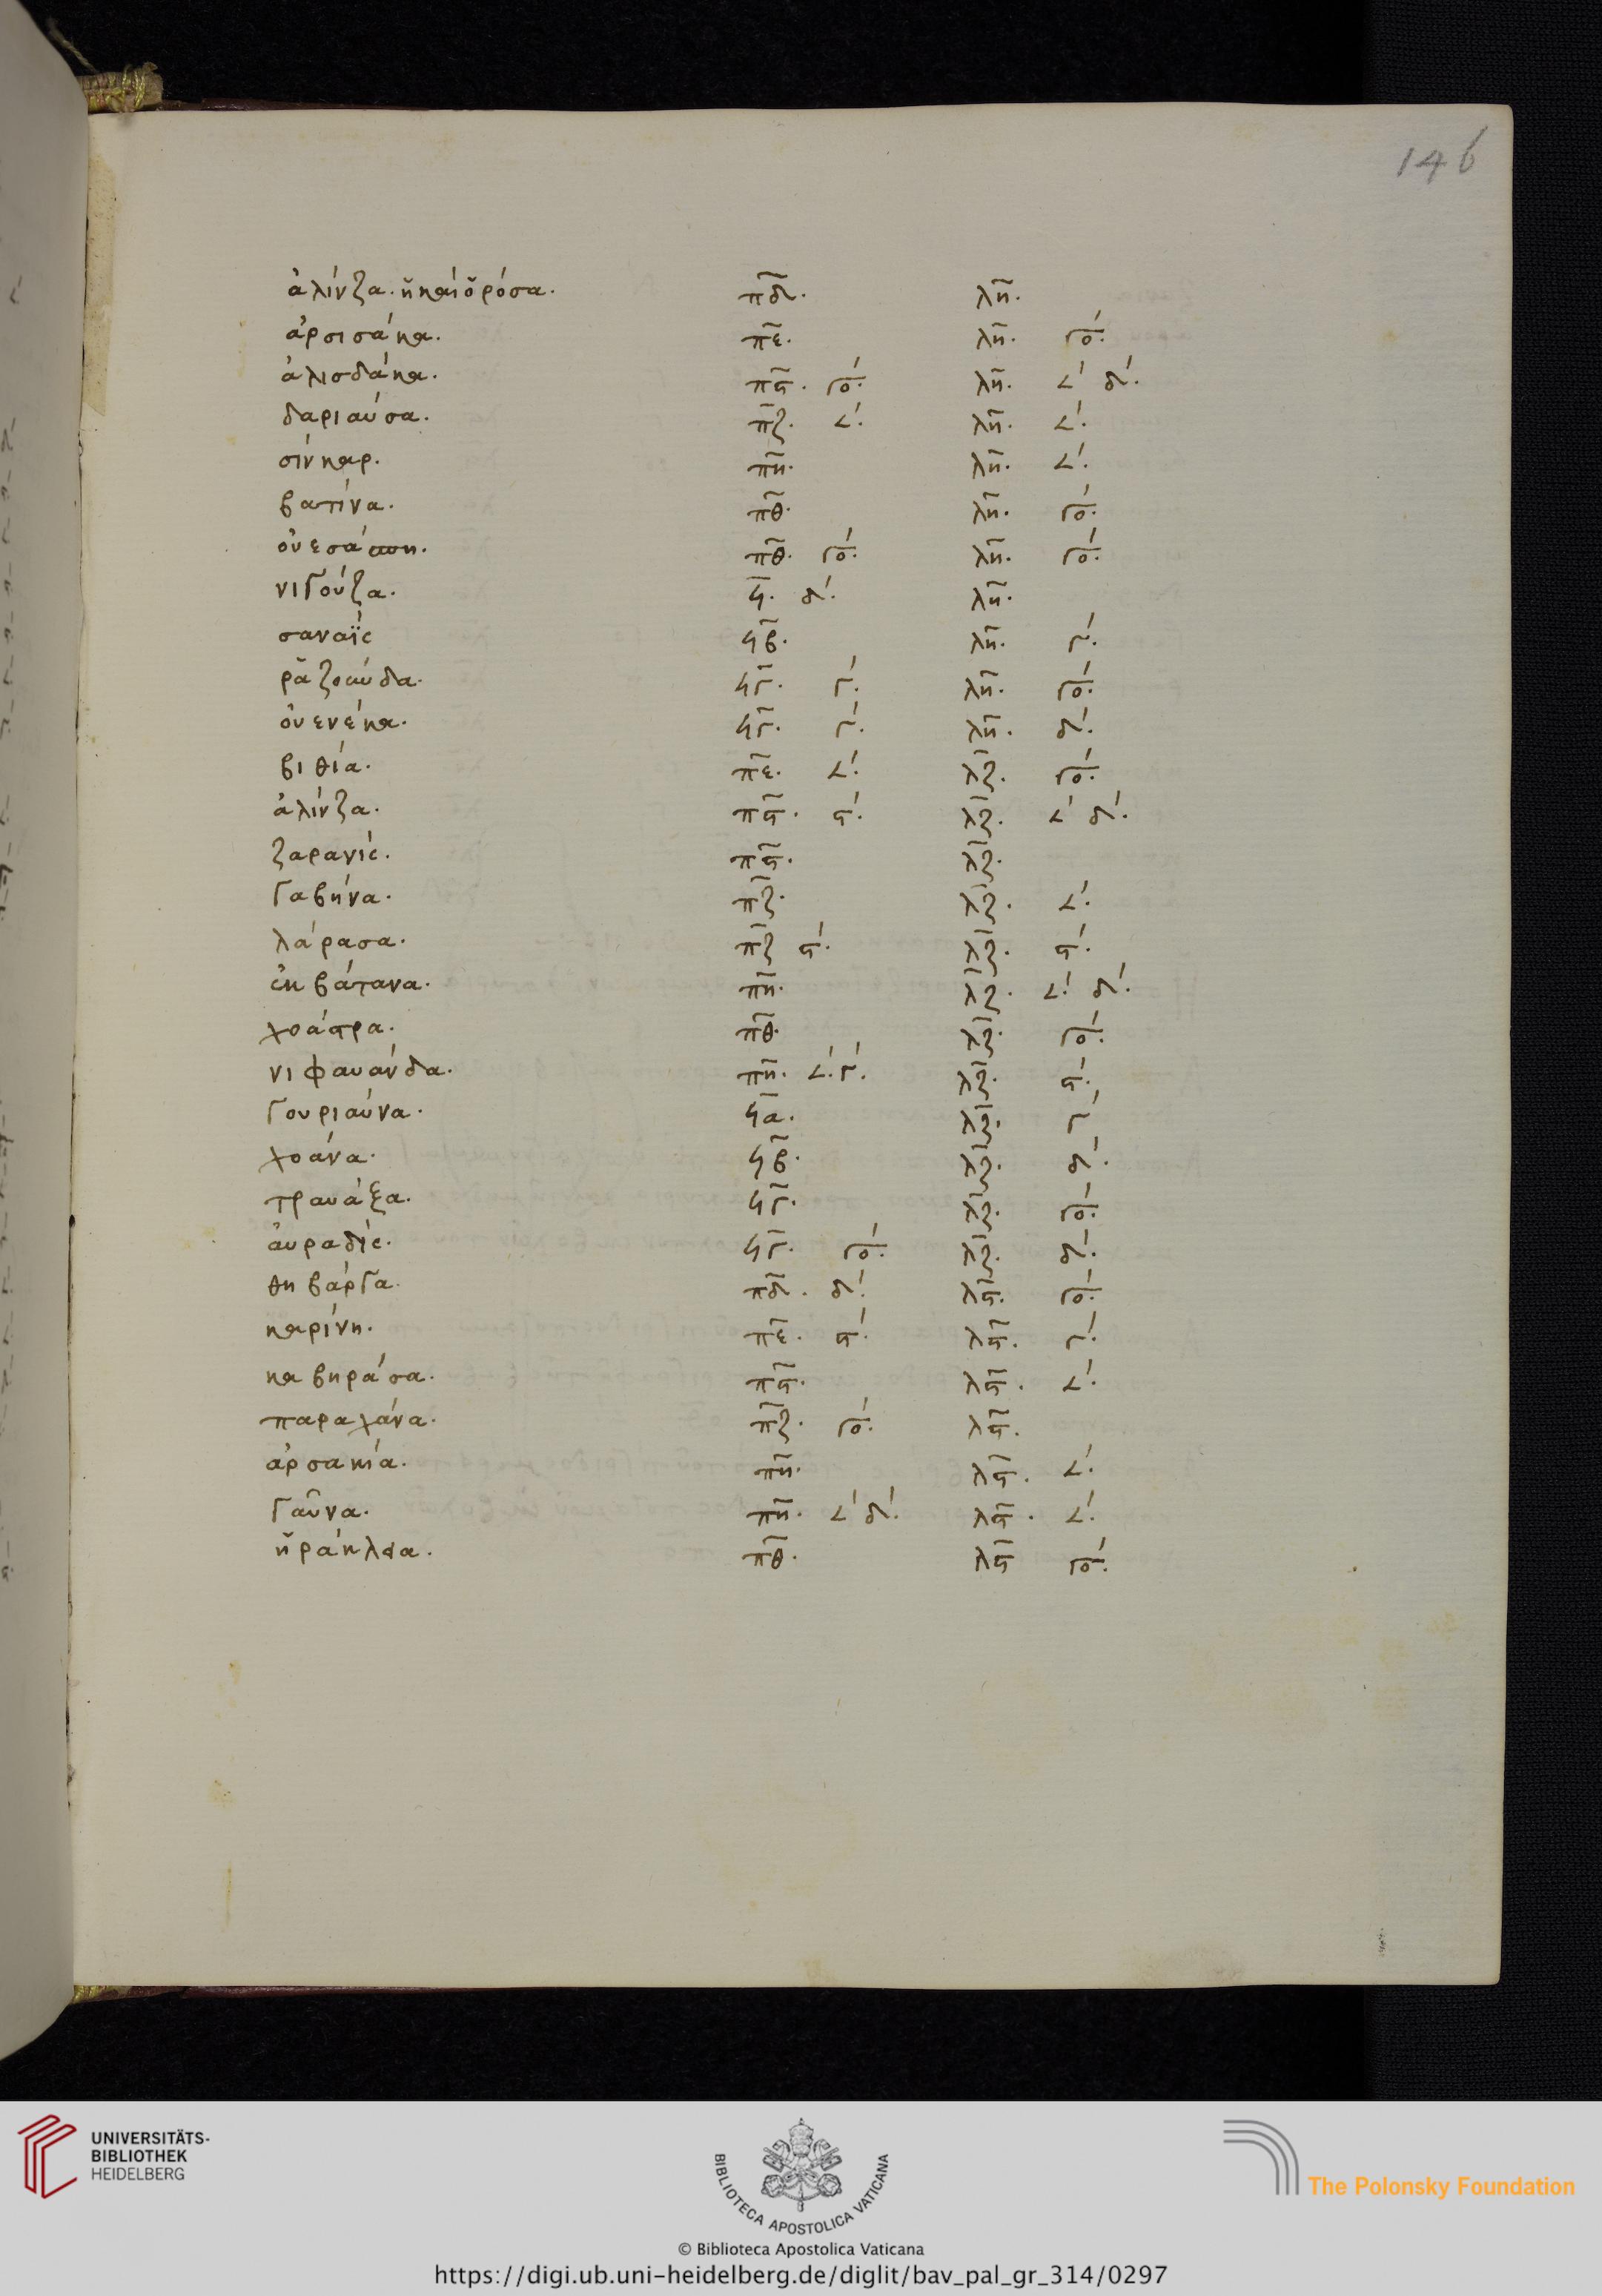 146
ἀλίνζα. ἢ καὶ ὀρόσα. πδ. λη.
ἀρσισάκα. πε. λη. γο.
ἀλισδάκα. πϛ. γο. λη. 𐅵 δ.
δαριαύσα. πζ. 𐅵. λη. 𐅵.
σίνκαρ. πη. λη. 𐅵.
βατίνα. πθ. λη. γο.
οὐεσάππη. πθ. γο. λη. γο.
νιγούζα. ϟ. δ. λη.
σαναΐς ϟβ. λη. γ.
ῥαζούνδα. ϟγ. γ. λη. γο.
οὐενέκα. ϟγ. γ. λη. δ.
βιθία. πε. 𐅵. λζ. γο.
ἀλίνζα. πϛ. ϛ. λζ. 𐅵 δ.
ζαρανίς. πϛ. λζ.
γαβήνα. πζ. λζ. 𐅵.
λάρασα. πζ ϛ. λζ. ϛ.
ἐκβάτανα. πη. λζ. 𐅵. δ.
χοάστρα. πθ. λζ. γο.
νιφαυάνδα. πη. 𐅵. γ. λζ. ϛ.
γουριαύνα. ϟα. λζ. γ
χοάνα. ϟβ. λζ. δ.
τραυάξα. ϟγ. λζ. γο.
αὐραδίς. ϟγ. γο. λζ. δ.
θηβάργα. πδ. δ. λϛ. γο.
καρίνη. πε. ϛ. λϛ. γ.
καβηράσα. πϛ. λϛ. 𐅵.
παραχάνα. πζ. γο. λϛ.
ἀρσακία. πη. λϛ. 𐅵.
γαῦνα. πη. 𐅵 δ. λϛ. 𐅵.
ἡράκλεια. πθ. λϛ γο.
UNIVERSITÄTS-
BIBLIOTHEK
HEIDELBERG
BIBLIOTECA APOSTOLICA VATICANA
The Polonsky Foundation
© Biblioteca Apostolica Vaticana
https://digi.ub.uni-heidelberg.de/diglit/bav_pal_gr_314/0297